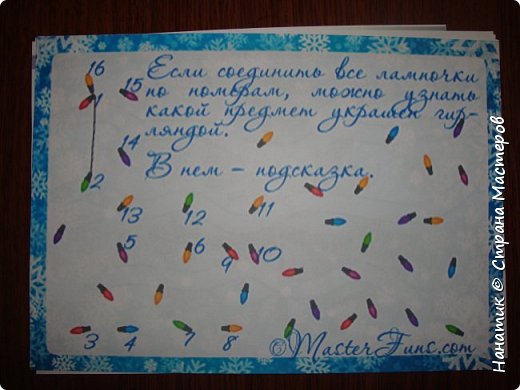 16
15
Если соединить все лампочки
1
по номерам, можно узнать
какой предмет украшен гир-
ляндой.
14
2
В нем - подсказка.
13
12
11
5
6
9
10
3
4
7
8
©MasterFuns.com
Нанатик © Страна Мастеров